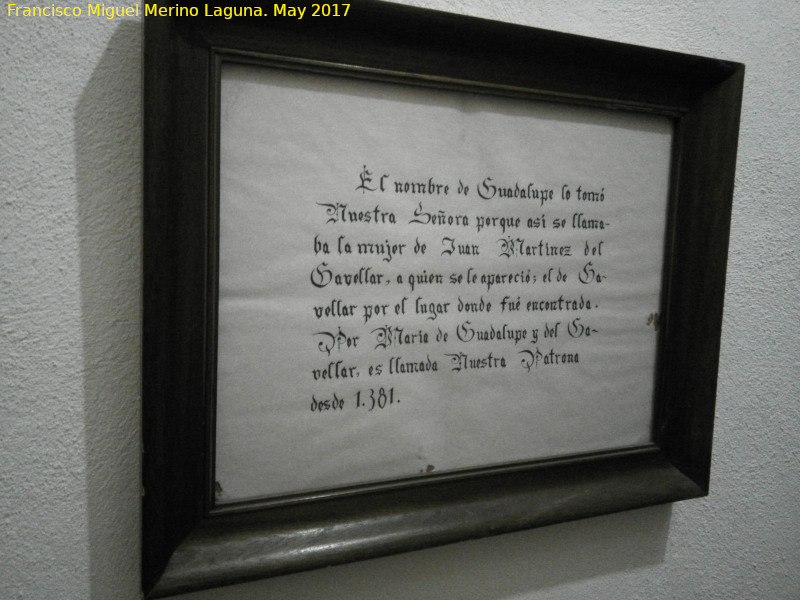 Francisco Miguel Merino Laguna. May 2017
El nombre de Guadalupe lo tomó
Nuestra Señora porque asi se llama-
ba la mujer de Juan Martinez del
Gavellar, a quien se le apareció; el de Ga-
vellar por el lugar donde fué encontrada.
Por Maria de Guadalupe y del Ga-
vellar, es llamada Nuestra Patrona
desde 1.381.